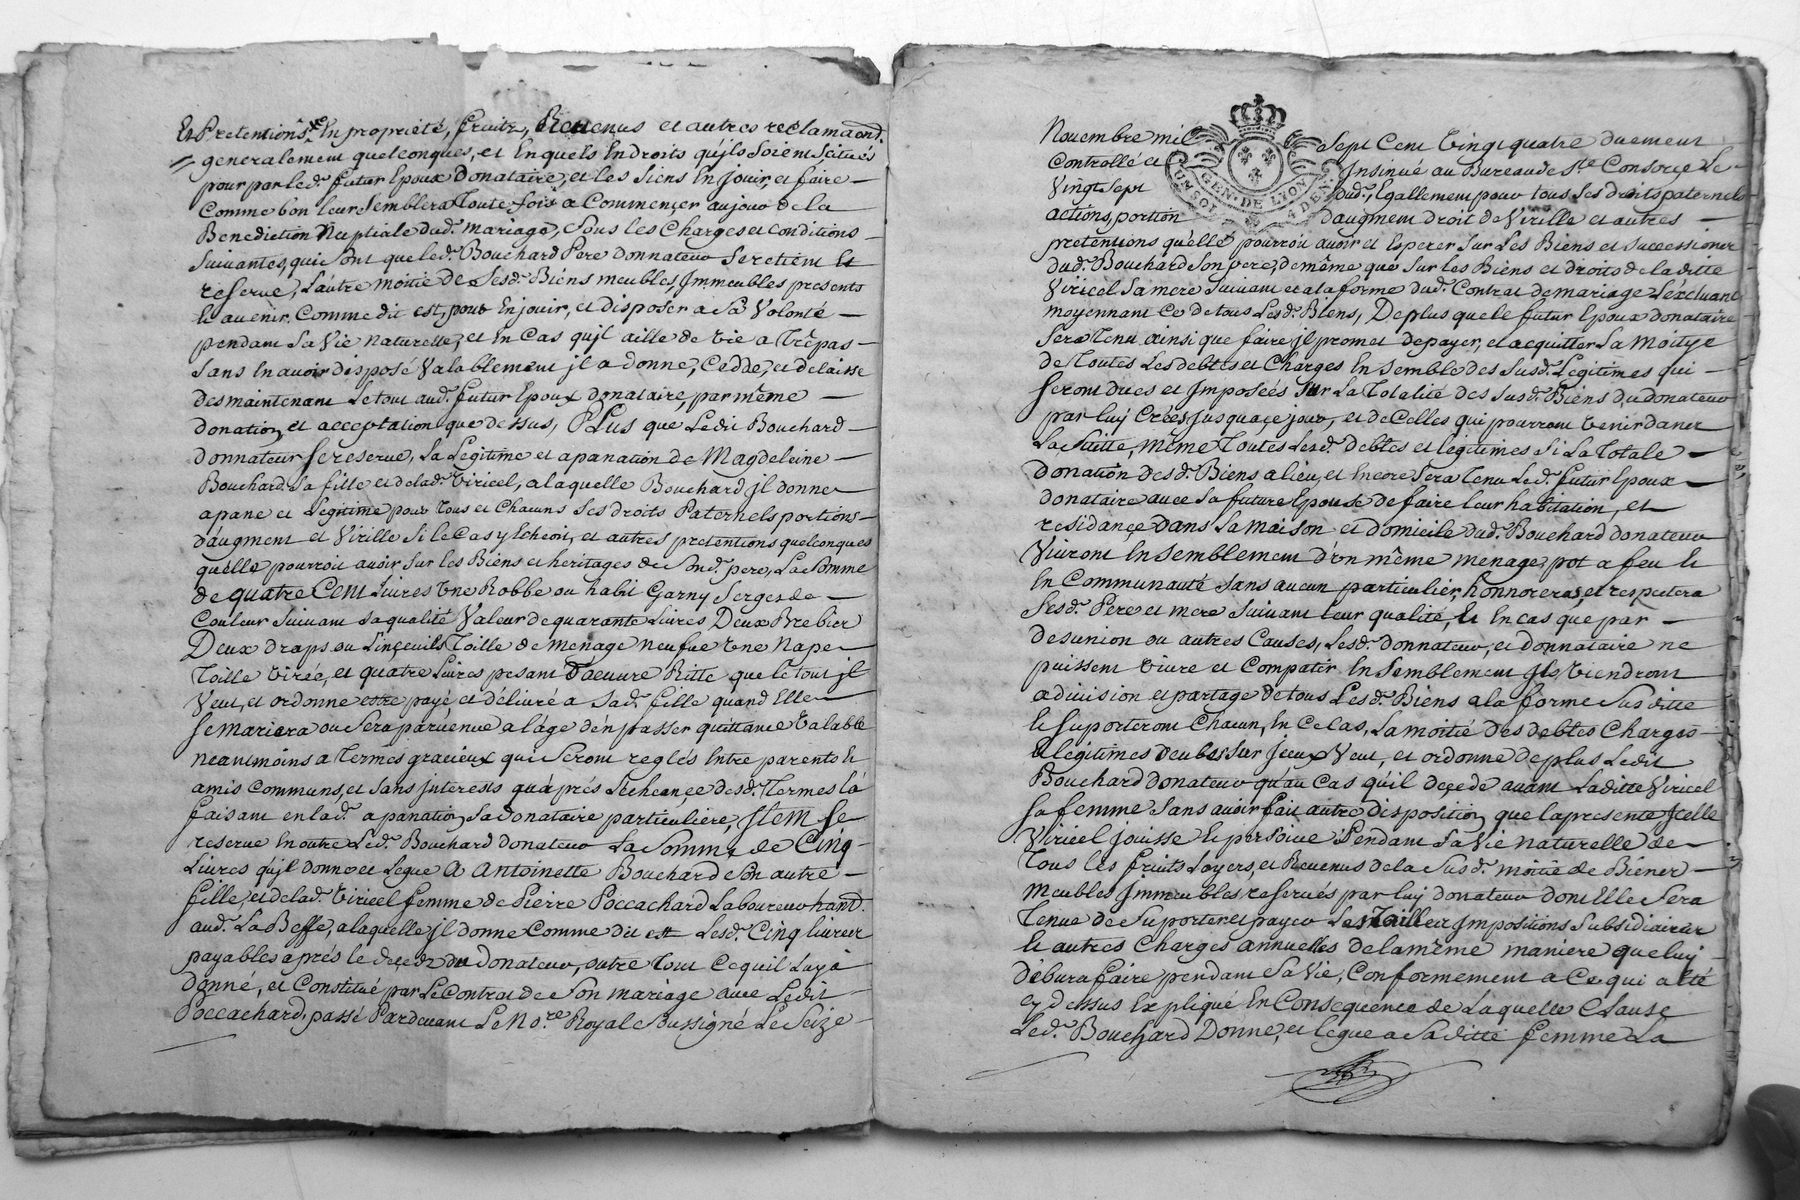 Et Pretentions, En propriété, fruits, Revenus et autres reclamaons.
generalement quelconques, et En quels Endroits qu'jls Soient Scitués
pour par led. futur Epoux donataire, et les Siens En Jouir, et faire
Comme bon leur Semblera Toute fois a Commençer aujour de la
Benediction Nuptiale dud. mariage, Sous les Charges et Conditions
Suivantes, qui Sont que led. Bouchard Pere donnateur Se retient Et
reserve, L'autre moitié de Sesd. Biens meubles, Immeubles presents
Et avenir. Comme dit est, pour En jouir, et disposer a Sa Volonté
pendant Sa Vie naturelle, et En Cas qu'jl aille de vie a Trêpas
Sans En avoir disposé Valablement jl a donne, Cedde, et delaisse
des maintenant Le tout aud. futur Epoux donataire, par même
donation, et acceptation que dessus, PLus que Ledit Bouchard
donnateur Se reserve, La Legitime et apanation de Magdeleine
Bouchard Sa fille et delad. Viricel, a laquelle Bouchard Jl donne
apane et Legitime pour Tous et Chacuns Ses droits Paternels portions
d'augment et Virille Si le Cas y Echeoit, et autres pretentions quelconques
qu'elle pourroit avoir Sur les Biens et heritages de Sond. pere, La Somme
de quatre Cent Livres Une Robbe ou habit Garny Serges de
Couleur Suivant Sa qualité Valeur de quarante Livres Deux Brebier
Deux draps ou Linçeuils Toille de menage neufue Une Nape
Toille Virée, et quatre Livres pesant D'aeuvre Ritte que le tout jl
Veut, et ordonne estre payé et délivré a Sad. fille quand Elle
Se mariera ou Sera parvenue a l'âge d'en passer quittance Valable
neantmoins a Termes gracieux qui Seront reglés Entre parents Et
amis Communs, et Sans jnterests qu'áprés L'echeançe desd. Termes la
faisant en lad. apanation, Sa donataire particuliere, JtEM Se
reserve En outre Led. Bouchard donateur La Somme de Cinq
Livres qu'jl donne et Legue A Antoinette Bouchard Son autre
fille, et delad. Viricel femme de Pierre Poccachard Laboureur habitt.
aud. La Beffe, a laquelle jl donne Comme dit est Lesd. Cinq livres
payables aprés le deçedz du Donateur, outre Tout Ce quil Luy a
donné, et Constitué par Le Contrat de Son mariage avec Ledit
Poccachard, passé Pardevant Le No.re Royal Soussigné Le Seize
Novembre mil Sept Cent Vingt quatre duement
Controllé et Insinué au Bureau de S.te Consorçe Le
Vingt Sept dud. Egallement pour tous Ses droits paternels
actions portion d'augment droit de Virille et autres
pretentions qu'elle pourroit avoir et Esperer Sur Les Biens et Successions
dud. Bouchard Son pere, de même que Sur les Biens et droits de la ditte
Viricel Sa mere Suivant et a la forme dud. Contrat de mariage L'éxcluant
moyennant Ce de tous Lesd. Biens, De plus que le futur Epoux donataire
Sera Tenu ainsi que faire jl promet de payer, et acquitter La Moitye
de Toutes Les debtes et Charges En Semble des Susd. Legitimes qui
Seront dues et Imposées Sur La Totalité des Susd. Biens du donateur
par luy Créés Jusqu'a ce jour, et de Celles qui pourront venir dans
La Suitte, même Toutes Lesd. debtes et legitimes Si La Totale
donation desd. Biens a lieu, et Encore Sera Tenu Led. futur Epoux
donataire avec Sa future Epouse de faire leur habitation, et
residançe dans La maison et domicile dud. Bouchard donateur
Vivront En Semblement d'un même menage, pot a feu Et
En Communauté Sans aucun particulier, honnorera, et respectera
Sesd. Pere et mere Suivant leur qualité, Et En cas que par
desunion ou autres Causes, Lesd. donnateur, et donnataire ne
puissent Vivre et Compatir En Semblement Jls Viendront
a division et partage de tous Lesd. Biens a la forme Susditte
Et Suporteront Chacun, En Ce Cas, La moitié des debtes Charges
Et legitimes deubes Sur jceux Veut, et ordonne de plus Ledit
Bouchard donateur qu'au Cas qu'il deçede avant Laditte Viricel
Sa femme Sans avoir fait autre disposition que la presente Jcelle
Viricel Jouisse Et perçoive Pendant Sa Vie naturelle de
Tous les fruits Loyers, et Revenus de la Susd. moitié de Biens
meubles Immeubles reservés par luy donateur dont Elle Sera
Tenue de Suporter et payer Les Tailles Impositions Subsidiaires
Et autres Charges annuelles de la même maniere que luy
débura faire pendant Sa Vie, Conformement a Ce qui a Eté
Cy dessus Expliqué En Consequence de Laquelle Clause
Led. Bouchard Donne, et legue a Saditte femme La
GEN. DE LYON
UN SOL 4 DEN.